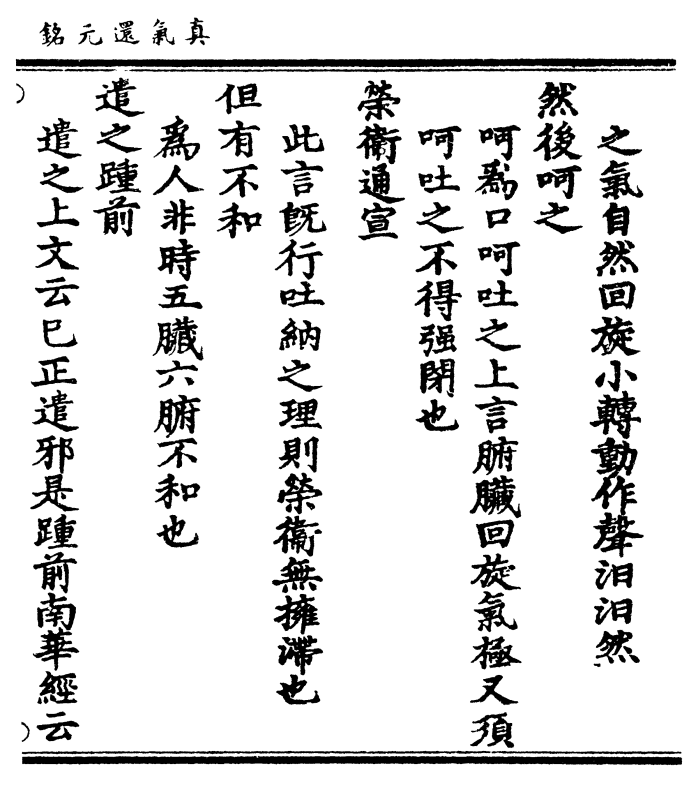 真氣還元銘
之氣自然回旋小轉動作聲汩汩然
然後呵之
呵爲口呵吐之上言腑臟回旋氣極又須
呵吐之不得强閉也
榮衞通宣
此言旣行吐納之理則榮衞無擁滯也
但有不和
爲人非時五臟六腑不和也
遣之踵前
遣之上文云巳正遣邪是踵前南華經云